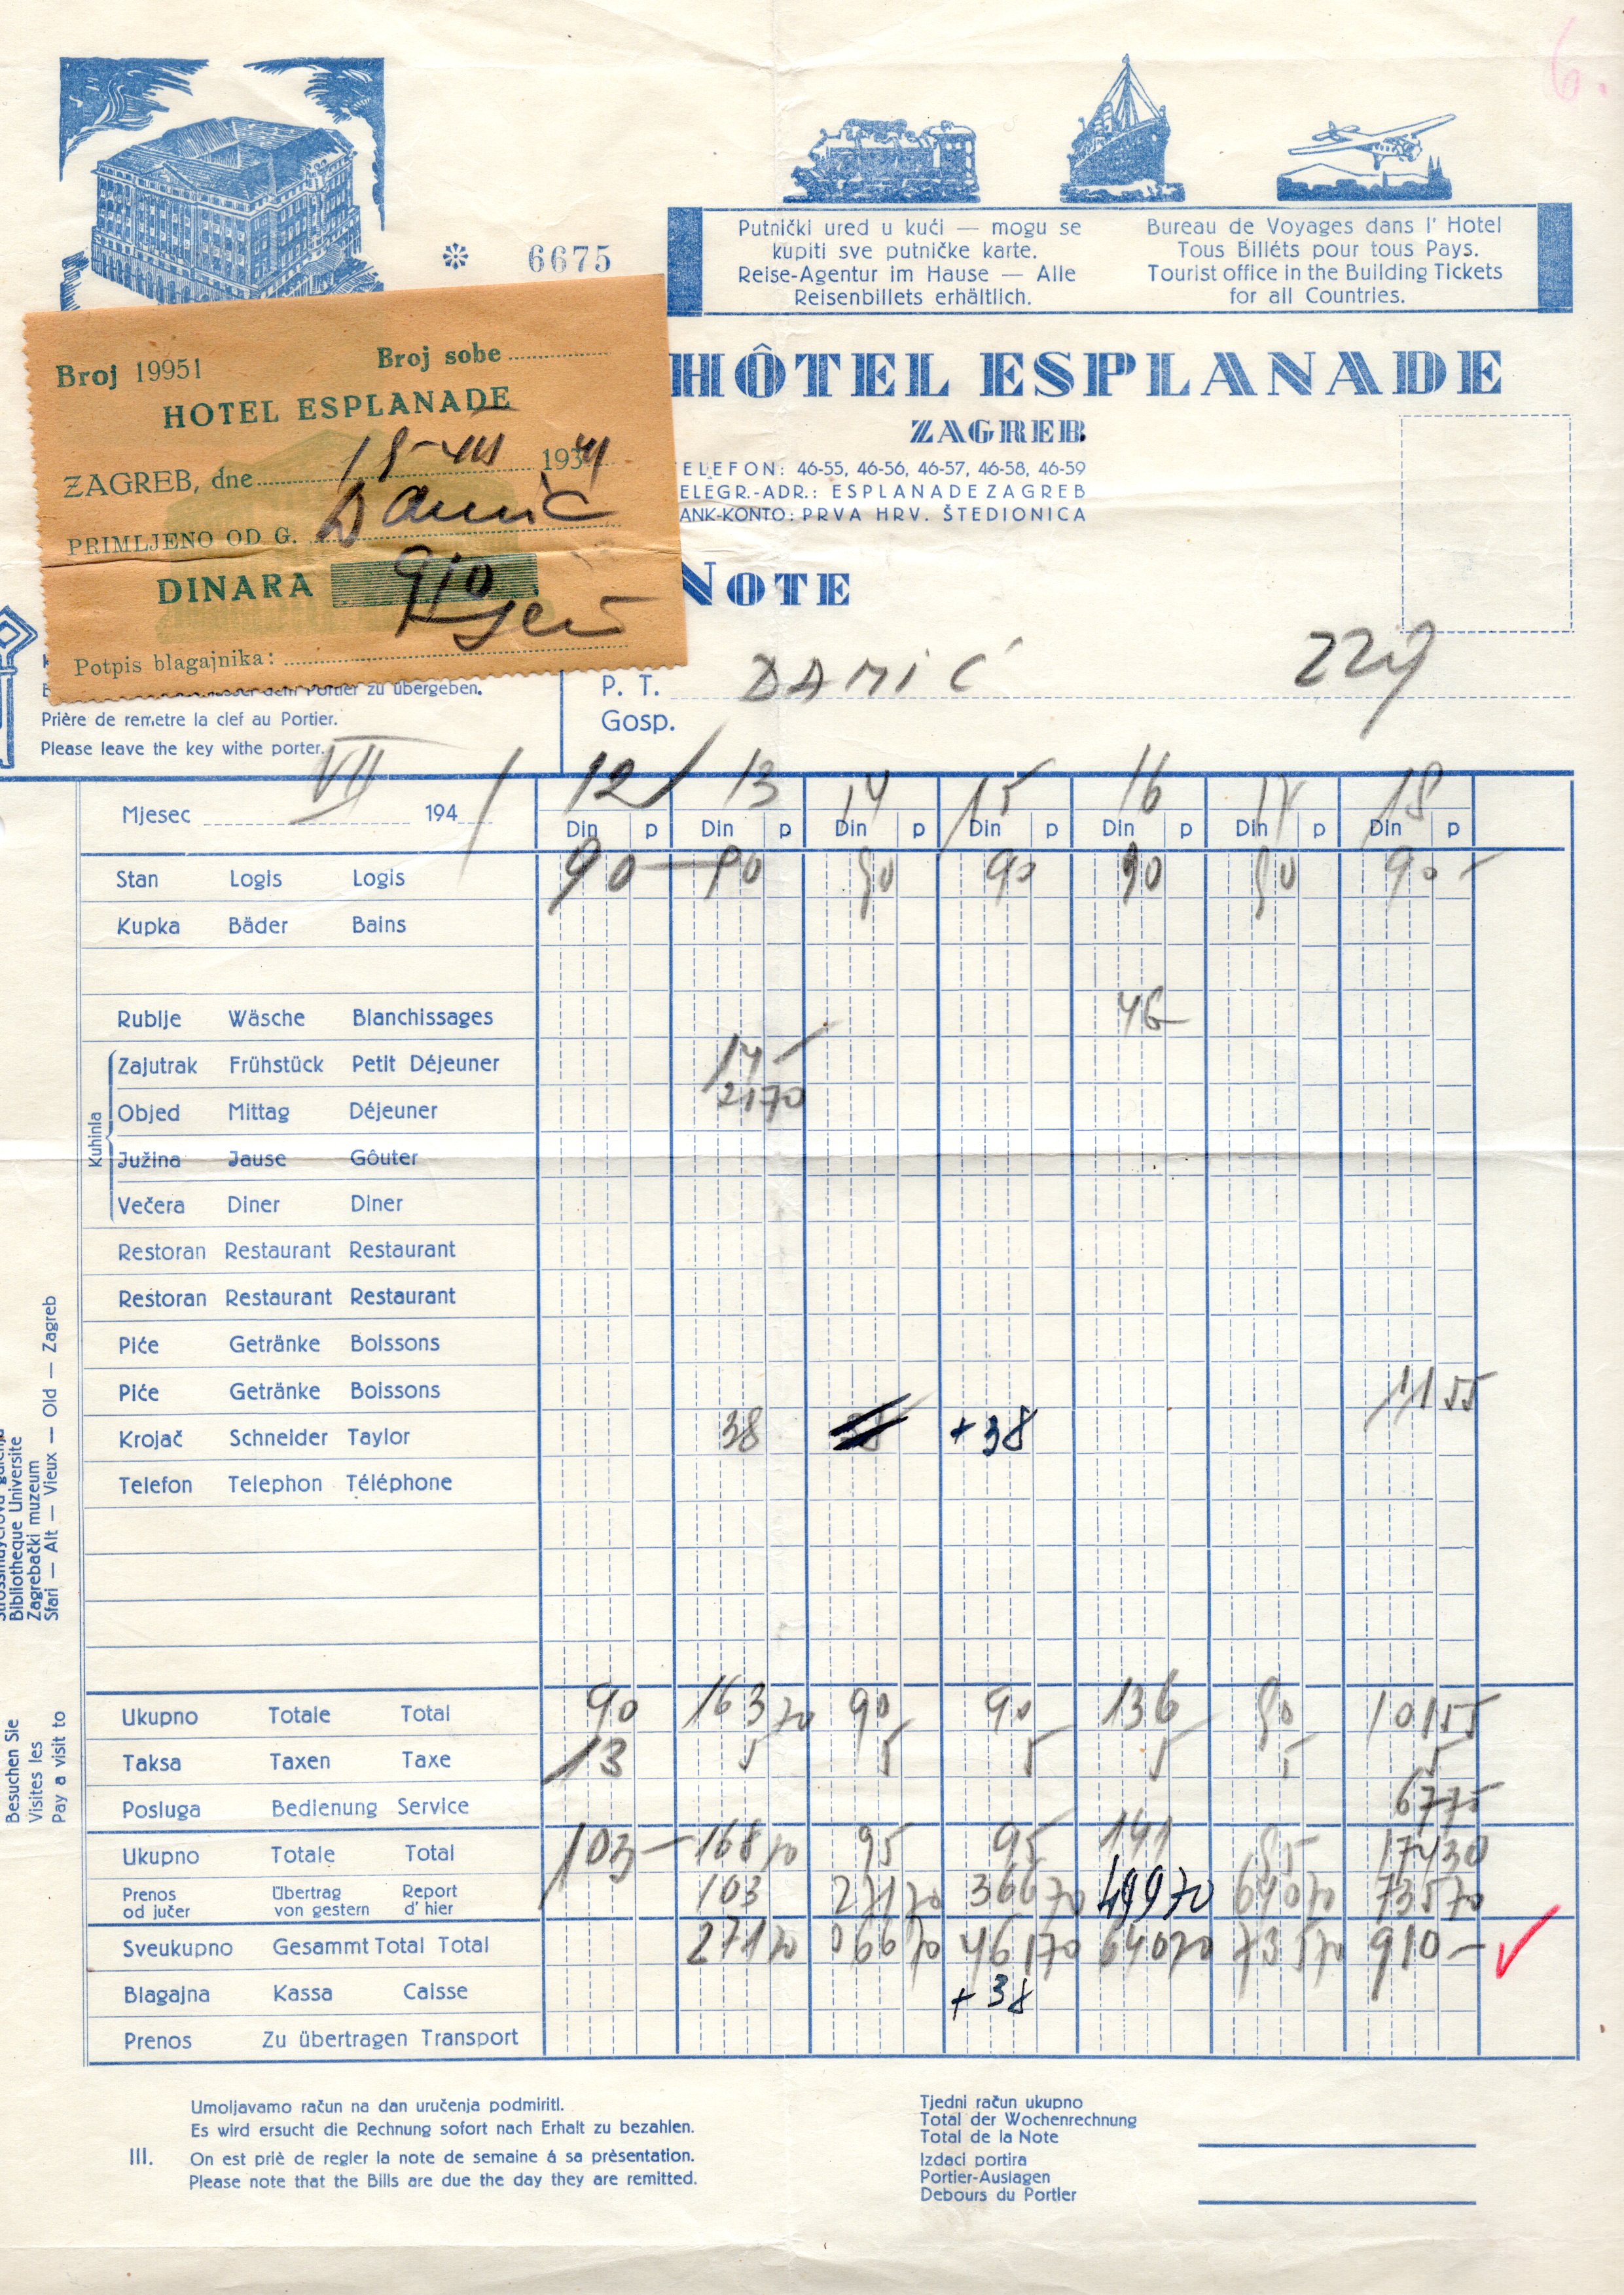 6.
6675
Putnički ured u kući — mogu se
kupiti sve putničke karte.
Reise-Agentur im Hause — Alle
Reisenbillets erhältlich.
Bureau de Voyages dans l' Hotel
Tous Billéts pour tous Pays.
Tourist office in the Building Tickets
for all Countries.
Broj 19951 Broj sobe
HOTEL ESPLANADE
ZAGREB, dne 18-VII 1941
PRIMLJENO OD G. Damić
DINARA 910
Potpis blagajnika:
HÔTEL ESPLANADE
ZAGREB
TELEFON: 46-55, 46-56, 46-57, 46-58, 46-59
ELEGR.-ADR.: ESPLANADE ZAGREB
ANK-KONTO: PRVA HRV. ŠTEDIONICA
NOTE
Portier zu übergeben.
Prière de remetre la clef au Portier.
Please leave the key withe porter.
P. T. DAMIĆ
Gosp.
Mjesec VII 1941 12 13 14 15 16 17 18
Din p Din p Din p Din p Din p Din p Din p
Stan Logis Logis 90 — 90 90 90 90 90 90 -
Kupka Bäder Bains
Rublje Wäsche Blanchissages 46 -
Kuhinla
Zajutrak Frühstück Petit Déjeuner 14 -
Objed Mittag Déjeuner 21 70
Južina Jause Gôuter
Večera Diner Diner
Restoran Restaurant Restaurant
Restoran Restaurant Restaurant
Piće Getränke Boissons
Piće Getränke Boissons 11 55
Krojač Schneider Taylor 38 38 + 38
Telefon Telephon Téléphone
Ukupno Totale Total 90 163 70 90 90 136 90 101 55
Taksa Taxen Taxe 13 5 5 5 5 5 5
Posluga Bedienung Service 67 75
Ukupno Totale Total 103 — 168 70 95 95 141 95 174 30
Prenos od jučer Übertrag von gestern Report d' hier 103 271 70 366 70 499 70 640 70 735 70
Sveukupno Gesammt Total Total 271 70 366 70 461 70 640 70 735 70 910 —
Blagajna Kassa Caisse + 38
Prenos Zu übertragen Transport
Bibliotheque Universite
Zagrebački muzeum
Sfari — Alt — Vieux — Old — Zagreb
Besuchen Sie
Visites les
Pay a visit to
Umoljavamo račun na dan uručenja podmiriti.
Es wird ersucht die Rechnung sofort nach Erhalt zu bezahlen.
III. On est priè de regler la note de semaine á sa prèsentation.
Please note that the Bills are due the day they are remitted.
Tjedni račun ukupno
Total der Wochenrechnung
Total de la Note
Izdaci portira
Portier-Auslagen
Debours du Portier